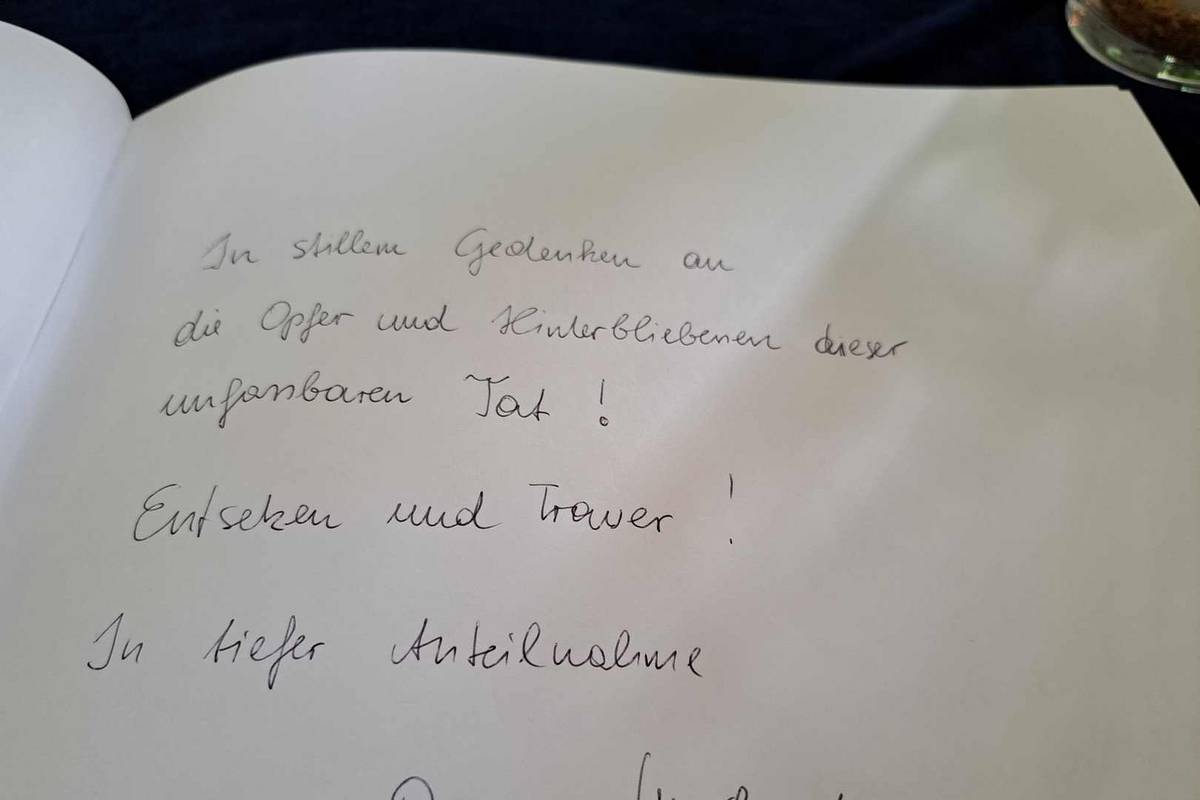 In stillem Gedenken an
die Opfer und Hinterbliebenen dieser
unfassbaren Tat !
Entsetzen und Trauer !
In tiefer Anteilnahme